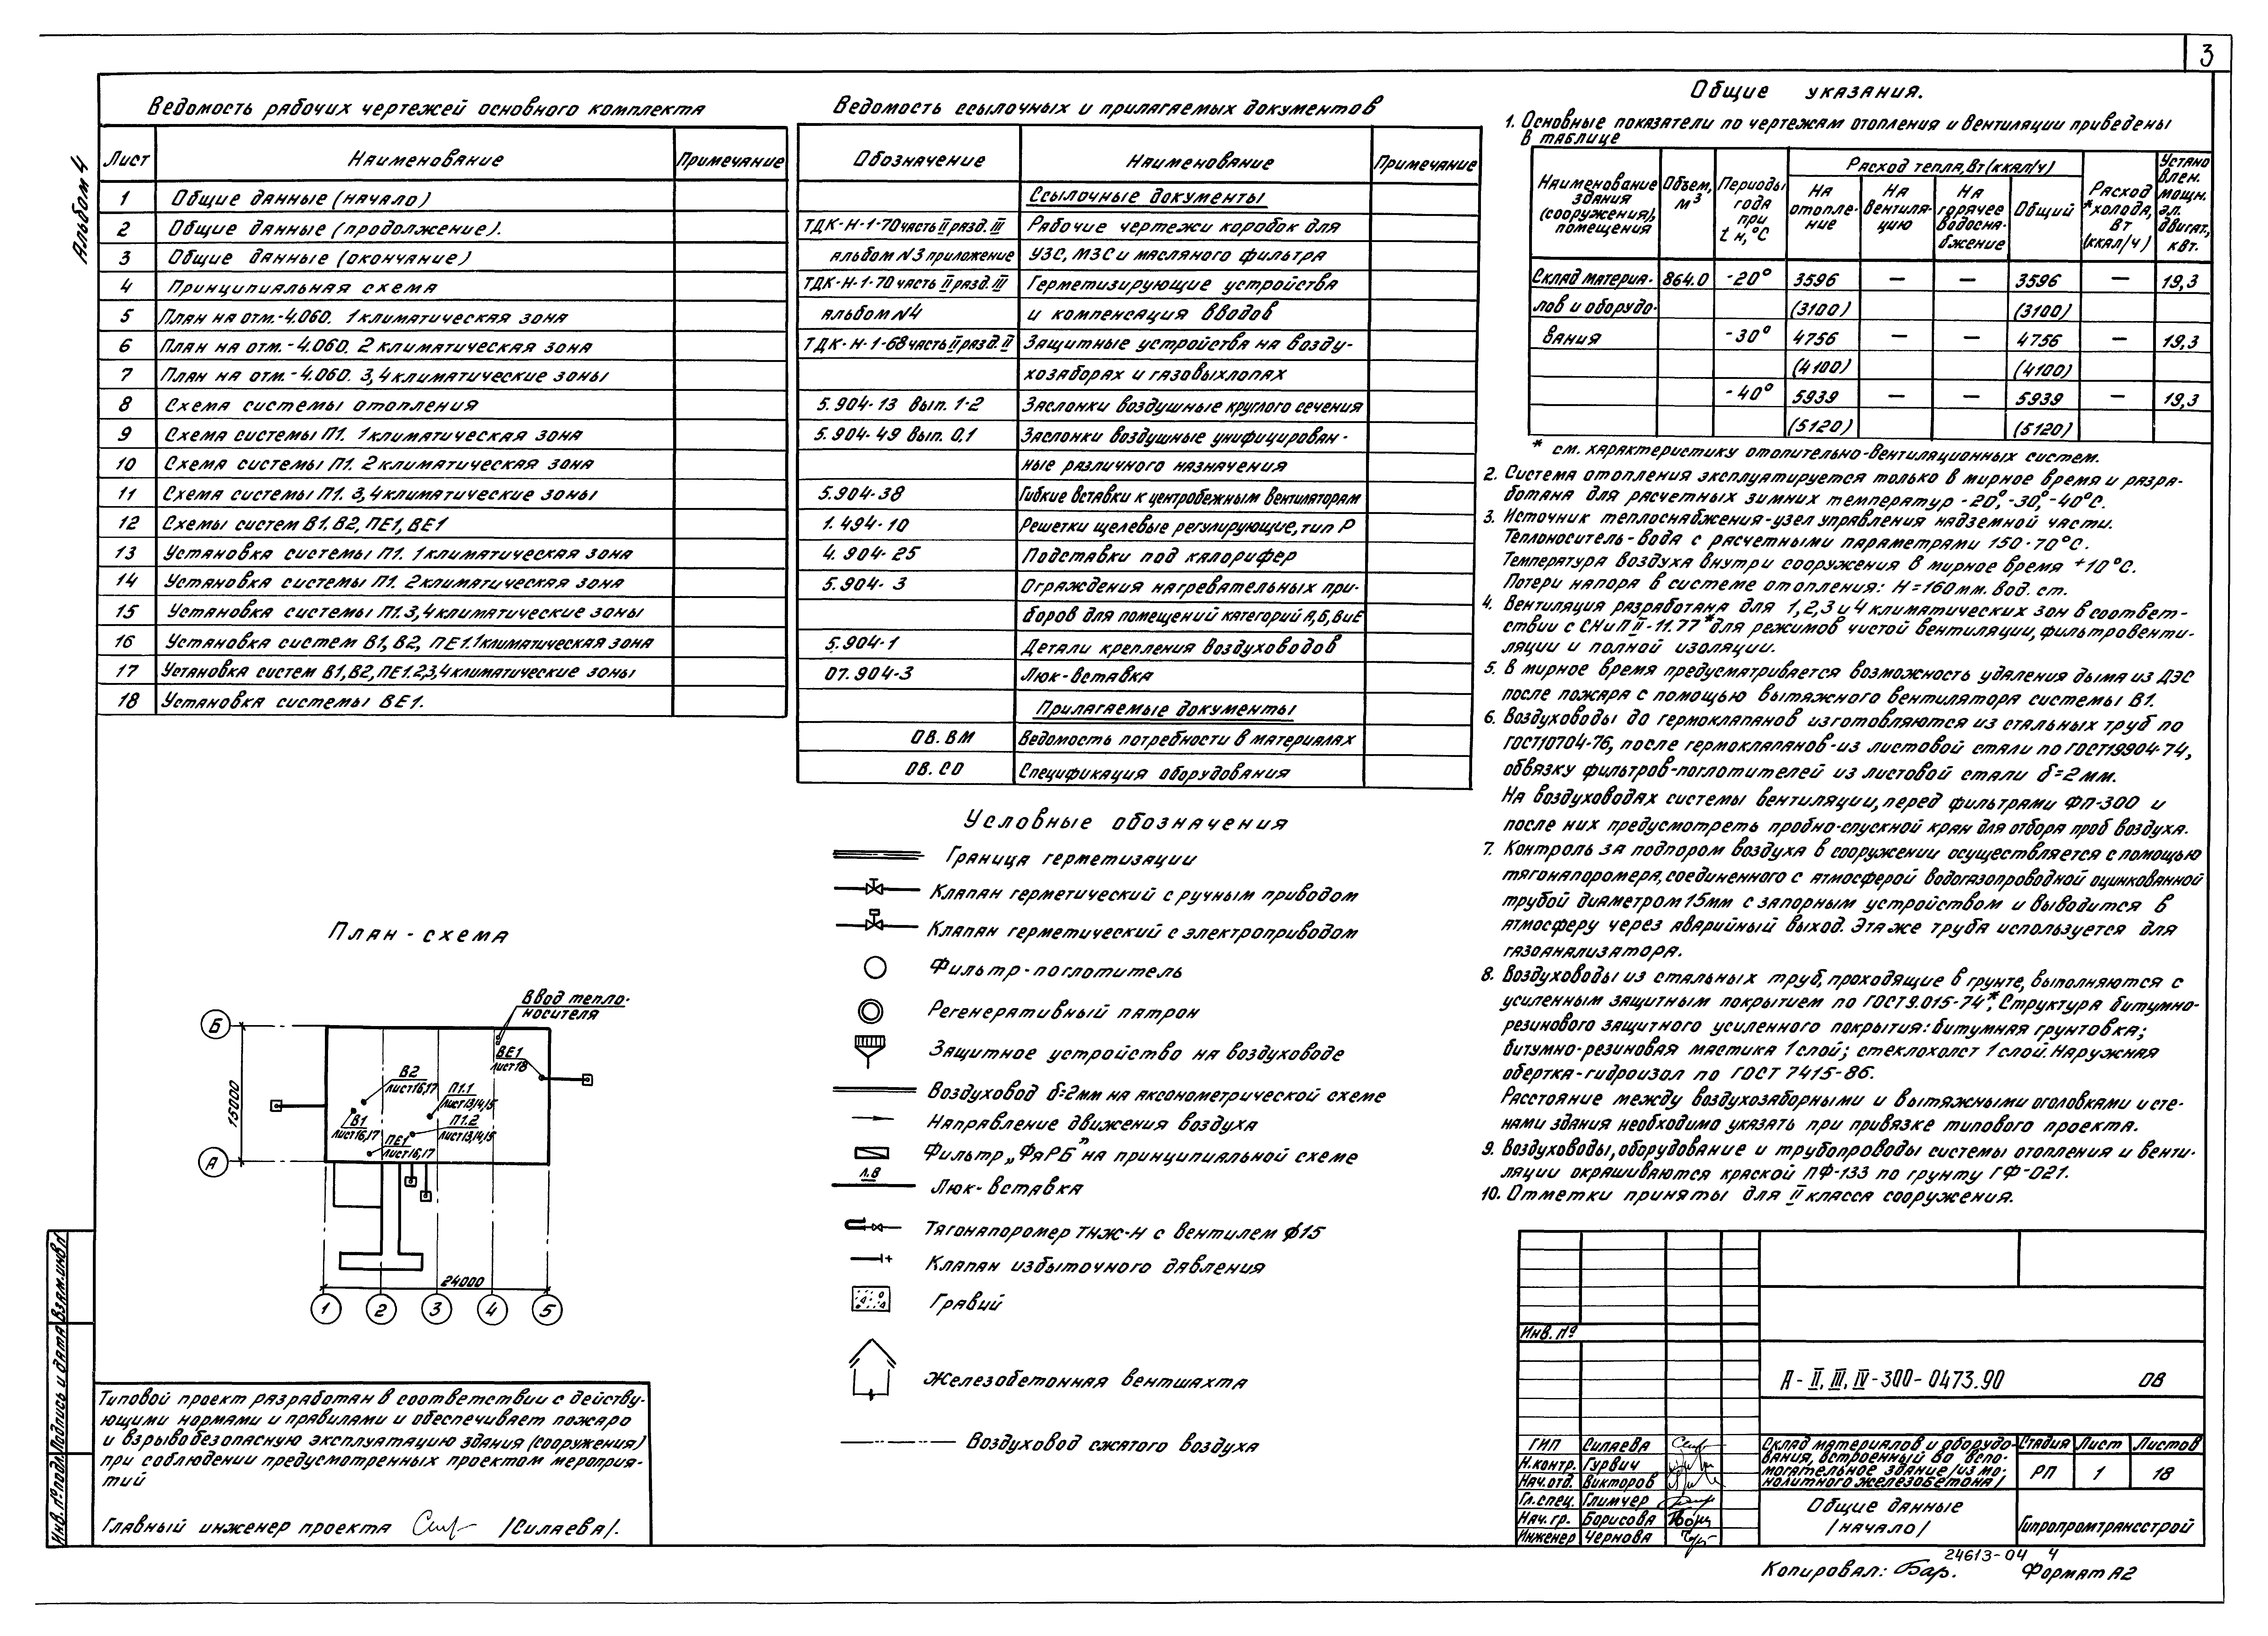 3
Альбом 4
Ведомость рабочих чертежей основного комплекта
Лист Наименование Примечание
1 Общие данные (начало)
2 Общие данные (продолжение).
3 Общие данные (окончание)
4 Принципиальная схема
5 План на отм.-4.060. 1 климатическая зона
6 План на отм.-4.060. 2 климатическая зона
7 План на отм.-4.060. 3,4 климатические зоны
8 Схема системы отопления
9 Схема системы П1. 1 климатическая зона
10 Схема системы П1. 2 климатическая зона
11 Схема системы П1. 3,4 климатические зоны
12 Схемы систем В1, В2, ПЕ1, ВЕ1
13 Установка системы П1. 1 климатическая зона
14 Установка системы П1. 2 климатическая зона
15 Установка системы П1. 3,4 климатические зоны
16 Установка систем В1, В2, ПЕ1. 1 климатическая зона
17 Установка систем В1, В2, ПЕ1. 2,3,4 климатические зоны
18 Установка системы ВЕ1.
Ведомость ссылочных и прилагаемых документов
Обозначение Наименование Примечание
Ссылочные документы
ТДК-Н-1-70 часть II разд. III Рабочие чертежи коробок для
альбом N3 приложение УЗС, МЗС и масляного фильтра
ТДК-Н-1-70 часть II разд. III Герметизирующие устройства
альбом N4 и компенсация вводов
ТДК-Н-1-68 часть II разд. II Защитные устройства на возду-
хозаборах и газовыхлопах
5.904-13 Вып. 1-2 Заслонки воздушные круглого сечения
5.904-49 Вып. 0,1 Заслонки воздушные унифицирован-
ные различного назначения
5.904-38 Гибкие вставки к центробежным вентиляторам
1.494-10 Решетки щелевые регулирующие, тип Р
4.904-25 Подставки под калорифер
5.904-3 Ограждения нагревательных при-
боров для помещений категорий А, Б, В и Е
5.904-1 Детали крепления воздуховодов
07.904-3 Люк-вставка
Прилагаемые документы
ОВ.ВМ Ведомость потребности в материалах
ОВ.СО Спецификация оборудования
Условные обозначения
Граница герметизации
Клапан герметический с ручным приводом
Клапан герметический с электроприводом
Фильтр-поглотитель
Регенеративный патрон
Защитное устройство на воздуховоде
Воздуховод δ=2мм на аксонометрической схеме
Направление движения воздуха
Фильтр „ФяРБ" на принципиальной схеме
Л.В
Люк-вставка
Тягонапоромер ТНЖ-Н с вентилем ф15
Клапан избыточного давления
Гравий
Железобетонная вентшахта
Воздуховод сжатого воздуха
План-схема
Ввод тепло-
носителя
Б
ВЕ1
лист 18
В2
лист 16,17
П1.1
лист 13,14,15
15000
В1
лист 16,17
П1.2
лист 13,14,15
ПЕ1
лист 16,17
А
24000
1 2 3 4 5
Типовой проект разработан в соответствии с действу-
ющими нормами и правилами и обеспечивает пожаро
и взрывобезопасную эксплуатацию здания (сооружения)
при соблюдении предусмотренных проектом мероприя-
тий
Главный инженер проекта /Силаева/.
Инв. № подл. Подпись и дата Взам.инв.№
Общие указания.
1. Основные показатели по чертежам отопления и вентиляции приведены
в таблице
Наименование здания (сооружения), помещения Объем, м³ Периоды года при t н, °С Расход тепла, Вт (ккал/ч) Расход *холода, Вт (ккал/ч) Установлен. мощн. эл. двигат., квт.
На отопление На вентиляцию На горячее водоснабжение Общий
Склад материа- 864.0 -20° 3596 — — 3596 — 19,3
лов и оборудо- (3100) (3100)
вания -30° 4756 — — 4756 — 19,3
(4100) (4100)
-40° 5939 — — 5939 — 19,3
(5120) (5120)
* см. характеристику отопительно-вентиляционных систем.
2. Система отопления эксплуатируется только в мирное время и разра-
ботана для расчетных зимних температур -20°, -30°, -40°С.
3. Источник теплоснабжения-узел управления надземной части.
Теплоноситель-вода с расчетными параметрами 150-70°С.
Температура воздуха внутри сооружения в мирное время +10°С.
Потери напора в системе отопления: Н=160мм. вод. ст.
4. Вентиляция разработана для 1,2,3 и 4 климатических зон в соответ-
ствии с СНиП II-11.77* для режимов чистой вентиляции, фильтровенти-
ляции и полной изоляции.
5. В мирное время предусматривается возможность удаления дыма из ДЭС
после пожара с помощью вытяжного вентилятора системы В1.
6. Воздуховоды до гермоклапанов изготовляются из стальных труб по
ГОСТ10704-76, после гермоклапанов-из листовой стали по ГОСТ19904-74,
обвязку фильтров-поглотителей из листовой стали δ=2мм.
На воздуховодах системы вентиляции, перед фильтрами ФП-300 и
после них предусмотреть пробно-спускной кран для отбора проб воздуха.
7. Контроль за подпором воздуха в сооружении осуществляется с помощью
тягонапоромера, соединенного с атмосферой водогазопроводной оцинкованной
трубой диаметром 15мм с запорным устройством и выводится в
атмосферу через аварийный выход. Эта же труба используется для
газоанализатора.
8. Воздуховоды из стальных труб, проходящие в грунте, выполняются с
усиленным защитным покрытием по ГОСТ9.015-74*, Структура битумно-
резинового защитного усиленного покрытия: битумная грунтовка;
битумно-резиновая мастика 1 слой; стеклохолст 1 слой. Наружная
обертка-гидроизол по ГОСТ 7415-86.
Расстояние между воздухозаборными и вытяжными оголовками и сте-
нами здания необходимо указать при привязке типового проекта.
9. Воздуховоды, оборудование и трубопроводы системы отопления и венти-
ляции окрашиваются краской ПФ-133 по грунту ГФ-021.
10. Отметки приняты для II класса сооружения.
Инв. №
А-II, III, IV-300-0473.90 ОВ
ГИП Силаева
Н.контр. Гурвич
Нач.отд. Викторов
Гл.спец. Глимчер
Нач.гр. Борисова
Инженер Чернова
Склад материалов и оборудо-
вания, встроенный во вспо-
могательное здание /из мо-
нолитного железобетона/
Стадия Лист Листов
РП 1 18
Общие данные
/начало/
Гипропромтрансстрой
24613-04 4
Копировал: Бар. Формат А2